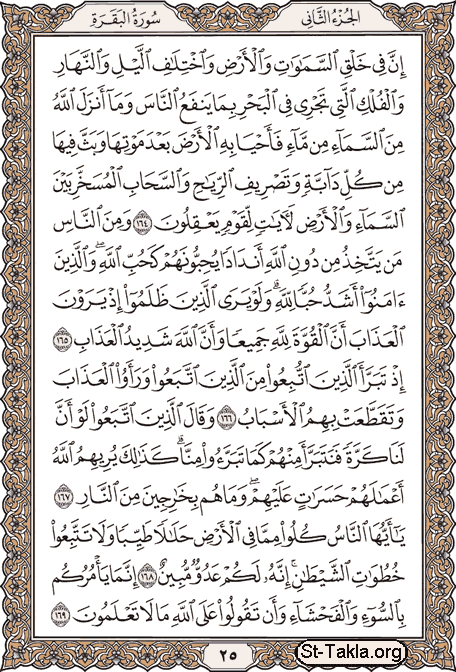 الجزء الثانى سورة البقرة
إِنَّ فِى خَلْقِ ٱلسَّمَٰوَٰتِ وَٱلْأَرْضِ وَٱخْتِلَٰفِ ٱلَّيْلِ وَٱلنَّهَارِ
وَٱلْفُلْكِ ٱلَّتِى تَجْرِى فِى ٱلْبَحْرِ بِمَا يَنفَعُ ٱلنَّاسَ وَمَآ أَنزَلَ ٱللَّهُ
مِنَ ٱلسَّمَآءِ مِن مَّآءٍ فَأَحْيَا بِهِ ٱلْأَرْضَ بَعْدَ مَوْتِهَا وَبَثَّ فِيهَا
مِن كُلِّ دَآبَّةٍ وَتَصْرِيفِ ٱلرِّيَٰحِ وَٱلسَّحَابِ ٱلْمُسَخَّرِ بَيْنَ
ٱلسَّمَآءِ وَٱلْأَرْضِ لَءَايَٰتٍ لِّقَوْمٍ يَعْقِلُونَ ١٦٤ وَمِنَ ٱلنَّاسِ
مَن يَتَّخِذُ مِن دُونِ ٱللَّهِ أَندَادًا يُحِبُّونَهُمْ كَحُبِّ ٱللَّهِ ۖ وَٱلَّذِينَ
ءَامَنُوٓا۟ أَشَدُّ حُبًّا لِّلَّهِ ۗ وَلَوْ يَرَى ٱلَّذِينَ ظَلَمُوٓا۟ إِذْ يَرَوْنَ
ٱلْعَذَابَ أَنَّ ٱلْقُوَّةَ لِلَّهِ جَمِيعًا وَأَنَّ ٱللَّهَ شَدِيدُ ٱلْعَذَابِ ١٦٥
إِذْ تَبَرَّأَ ٱلَّذِينَ ٱتُّبِعُوا۟ مِنَ ٱلَّذِينَ ٱتَّبَعُوا۟ وَرَأَوُا۟ ٱلْعَذَابَ
وَتَقَطَّعَتْ بِهِمُ ٱلْأَسْبَابُ ١٦٦ وَقَالَ ٱلَّذِينَ ٱتَّبَعُوا۟ لَوْ أَنَّ
لَنَا كَرَّةً فَنَتَبَرَّأَ مِنْهُمْ كَمَا تَبَرَّءُوا۟ مِنَّا ۗ كَذَٰلِكَ يُرِيهِمُ ٱللَّهُ
أَعْمَٰلَهُمْ حَسَرَٰتٍ عَلَيْهِمْ ۖ وَمَا هُم بِخَٰرِجِينَ مِنَ ٱلنَّارِ ١٦٧
يَٰٓأَيُّهَا ٱلنَّاسُ كُلُوا۟ مِمَّا فِى ٱلْأَرْضِ حَلَٰلًا طَيِّبًا وَلَا تَتَّبِعُوا۟
خُطُوَٰتِ ٱلشَّيْطَٰنِ ۚ إِنَّهُۥ لَكُمْ عَدُوٌّ مُّبِينٌ ١٦٨ إِنَّمَا يَأْمُرُكُم
بِٱلسُّوٓءِ وَٱلْفَحْشَآءِ وَأَن تَقُولُوا۟ عَلَى ٱللَّهِ مَا لَا تَعْلَمُونَ ١٦٩
٢٥
St-Takla.org